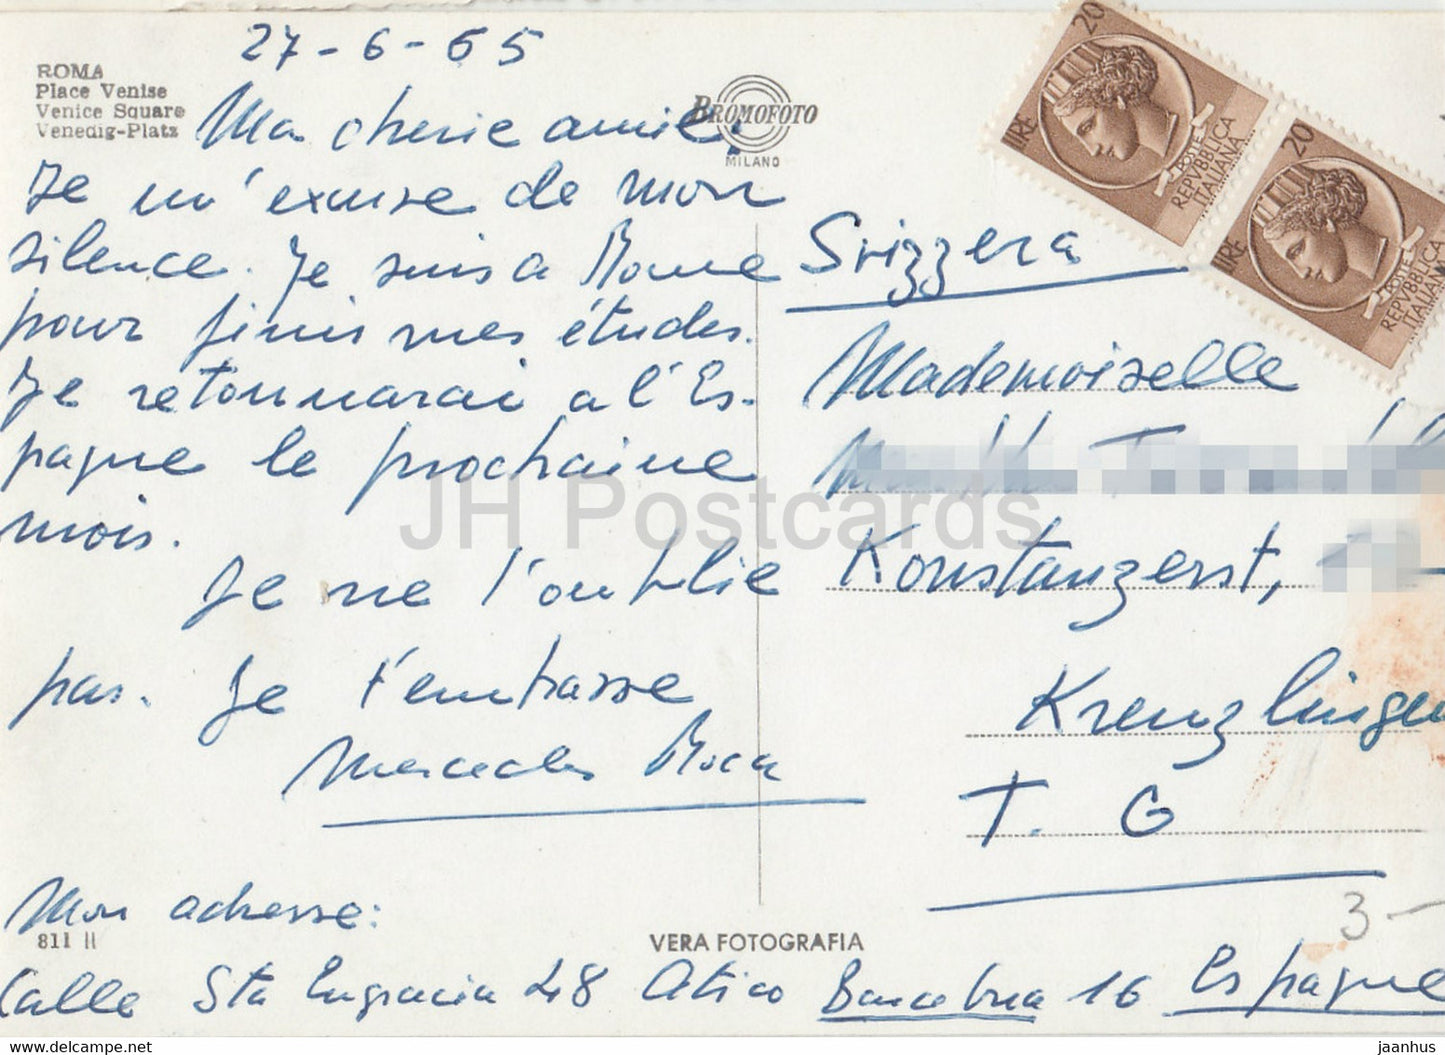 27-6-65
ROMA
Place Venise
Venice Square
Venedig-Platz
BROMOFOTO
MILANO
Ma cherie amie,
Je m'excuse de mon
silence. Je suis a Rome
pour finir mes études.
Je retournarai a l'Es-
pagne le prochaine
mois.
Je ne t'oublie
pas. Je t'embrasse
Mercedes Roca
Mon adresse:
811 II
VERA FOTOGRAFIA
Calle Sta Engracia 48 Atico Barcelona 16 Espagne
20
LIRE
POSTE
REPVBBLICA
ITALIANA
20
LIRE
POSTE
REPVBBLICA
ITALIANA
Svizzera
Mademoiselle
Konstanzerst,
Kreuzlingen
T. G
3-
JH Postcards
www.delcampe.net
jaanhus